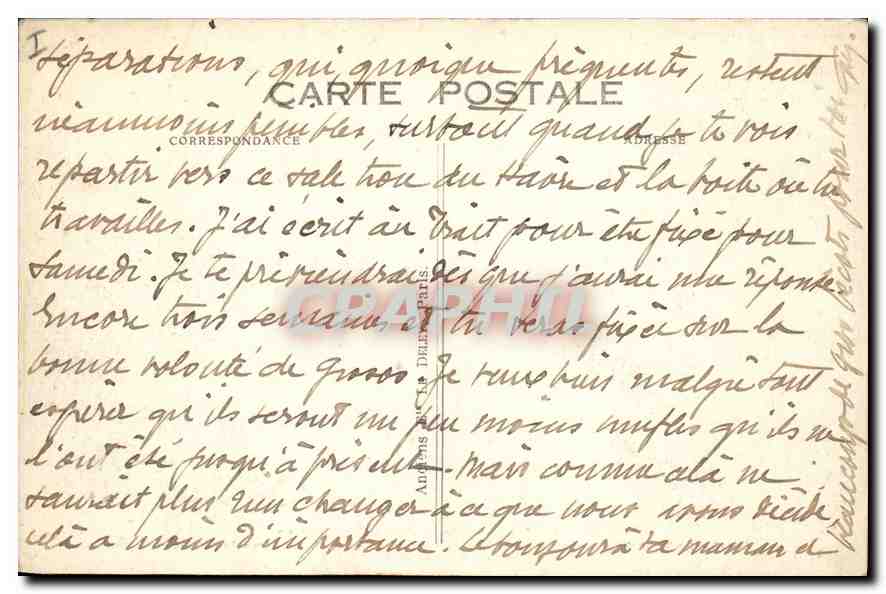 I
séparations, qui quoique fréquentes, restent
CARTE POSTALE
néanmoins pénibles, surtout quand je te vois
CORRESPONDANCE
ADRESSE
repartir vers ce sale trou du et la boîte où tu
travailles. J'ai écrit au Trait pour être fixé pour
samedi. Je te préviendrai dès que j'aurai une réponse
Encore trois semaines et tu seras fixée sur la
bonne volonté de . Je veux malgré tout
espérer qu'ils seront un peu moins mufles qu'ils ne
l'ont été jusqu'à présent. Mais comme cela ne
saurait plus rien changer à ce que nous avons décidé,
cela a moins d'importance. Le bonjour à ta maman et
beaucoup de gros pour toi
Anciens Etts Deley Paris.
CPAPHIL